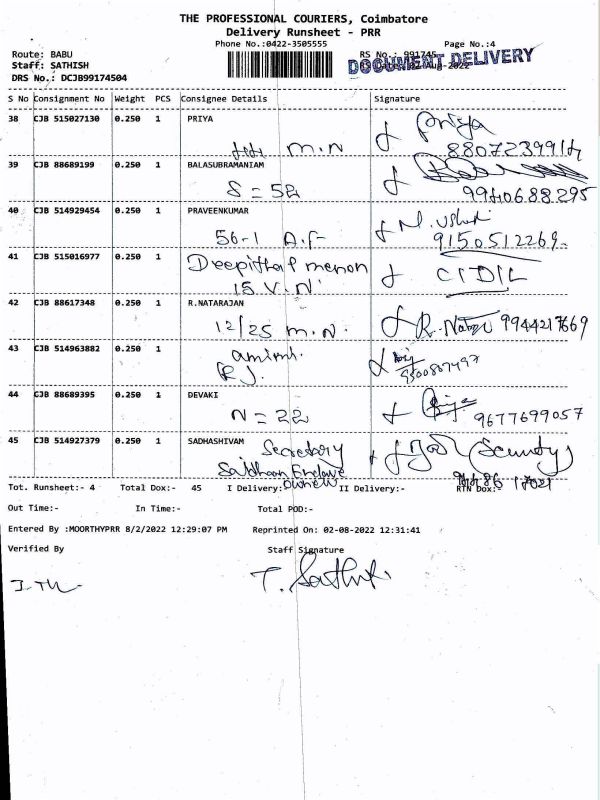 THE PROFESSIONAL COURIERS, Coimbatore
Delivery Runsheet - PRR
Phone No.:0422-3505555 Page No.:4
Route: BABU RS No.: 991745
Staff: SATHISH DOCUMENT DELIVERY
DRS No.: DCJB99174504
S No Consignment No Weight PCS Consignee Details Signature
38 CJB 515027130 0.250 1 PRIYA Priya
M.N
39 CJB 88689199 0.250 1 BALASUBRAMANIAM
S = 52 9940688295
40 CJB 514929454 0.250 1 PRAVEENKUMAR
56-1 A.F 9150512269
41 CJB 515016977 0.250 1 menon
15 V.N
42 CJB 88617348 0.250 1 R.NATARAJAN
12/25 M.N. 9944217669
43 CJB 514963882 0.250 1
44 CJB 88689395 0.250 1 DEVAKI
N = 22 9677699057
45 CJB 514927379 0.250 1 SADHASHIVAM
Secretary (Security)
Tot. Runsheet:- 4 Total Dox:- 45 I Delivery:- II Delivery:- RTN Dox:-
Out Time:- In Time:- Total POD:-
Entered By :MOORTHYPRR 8/2/2022 12:29:07 PM Reprinted On: 02-08-2022 12:31:41
Verified By Staff Signature